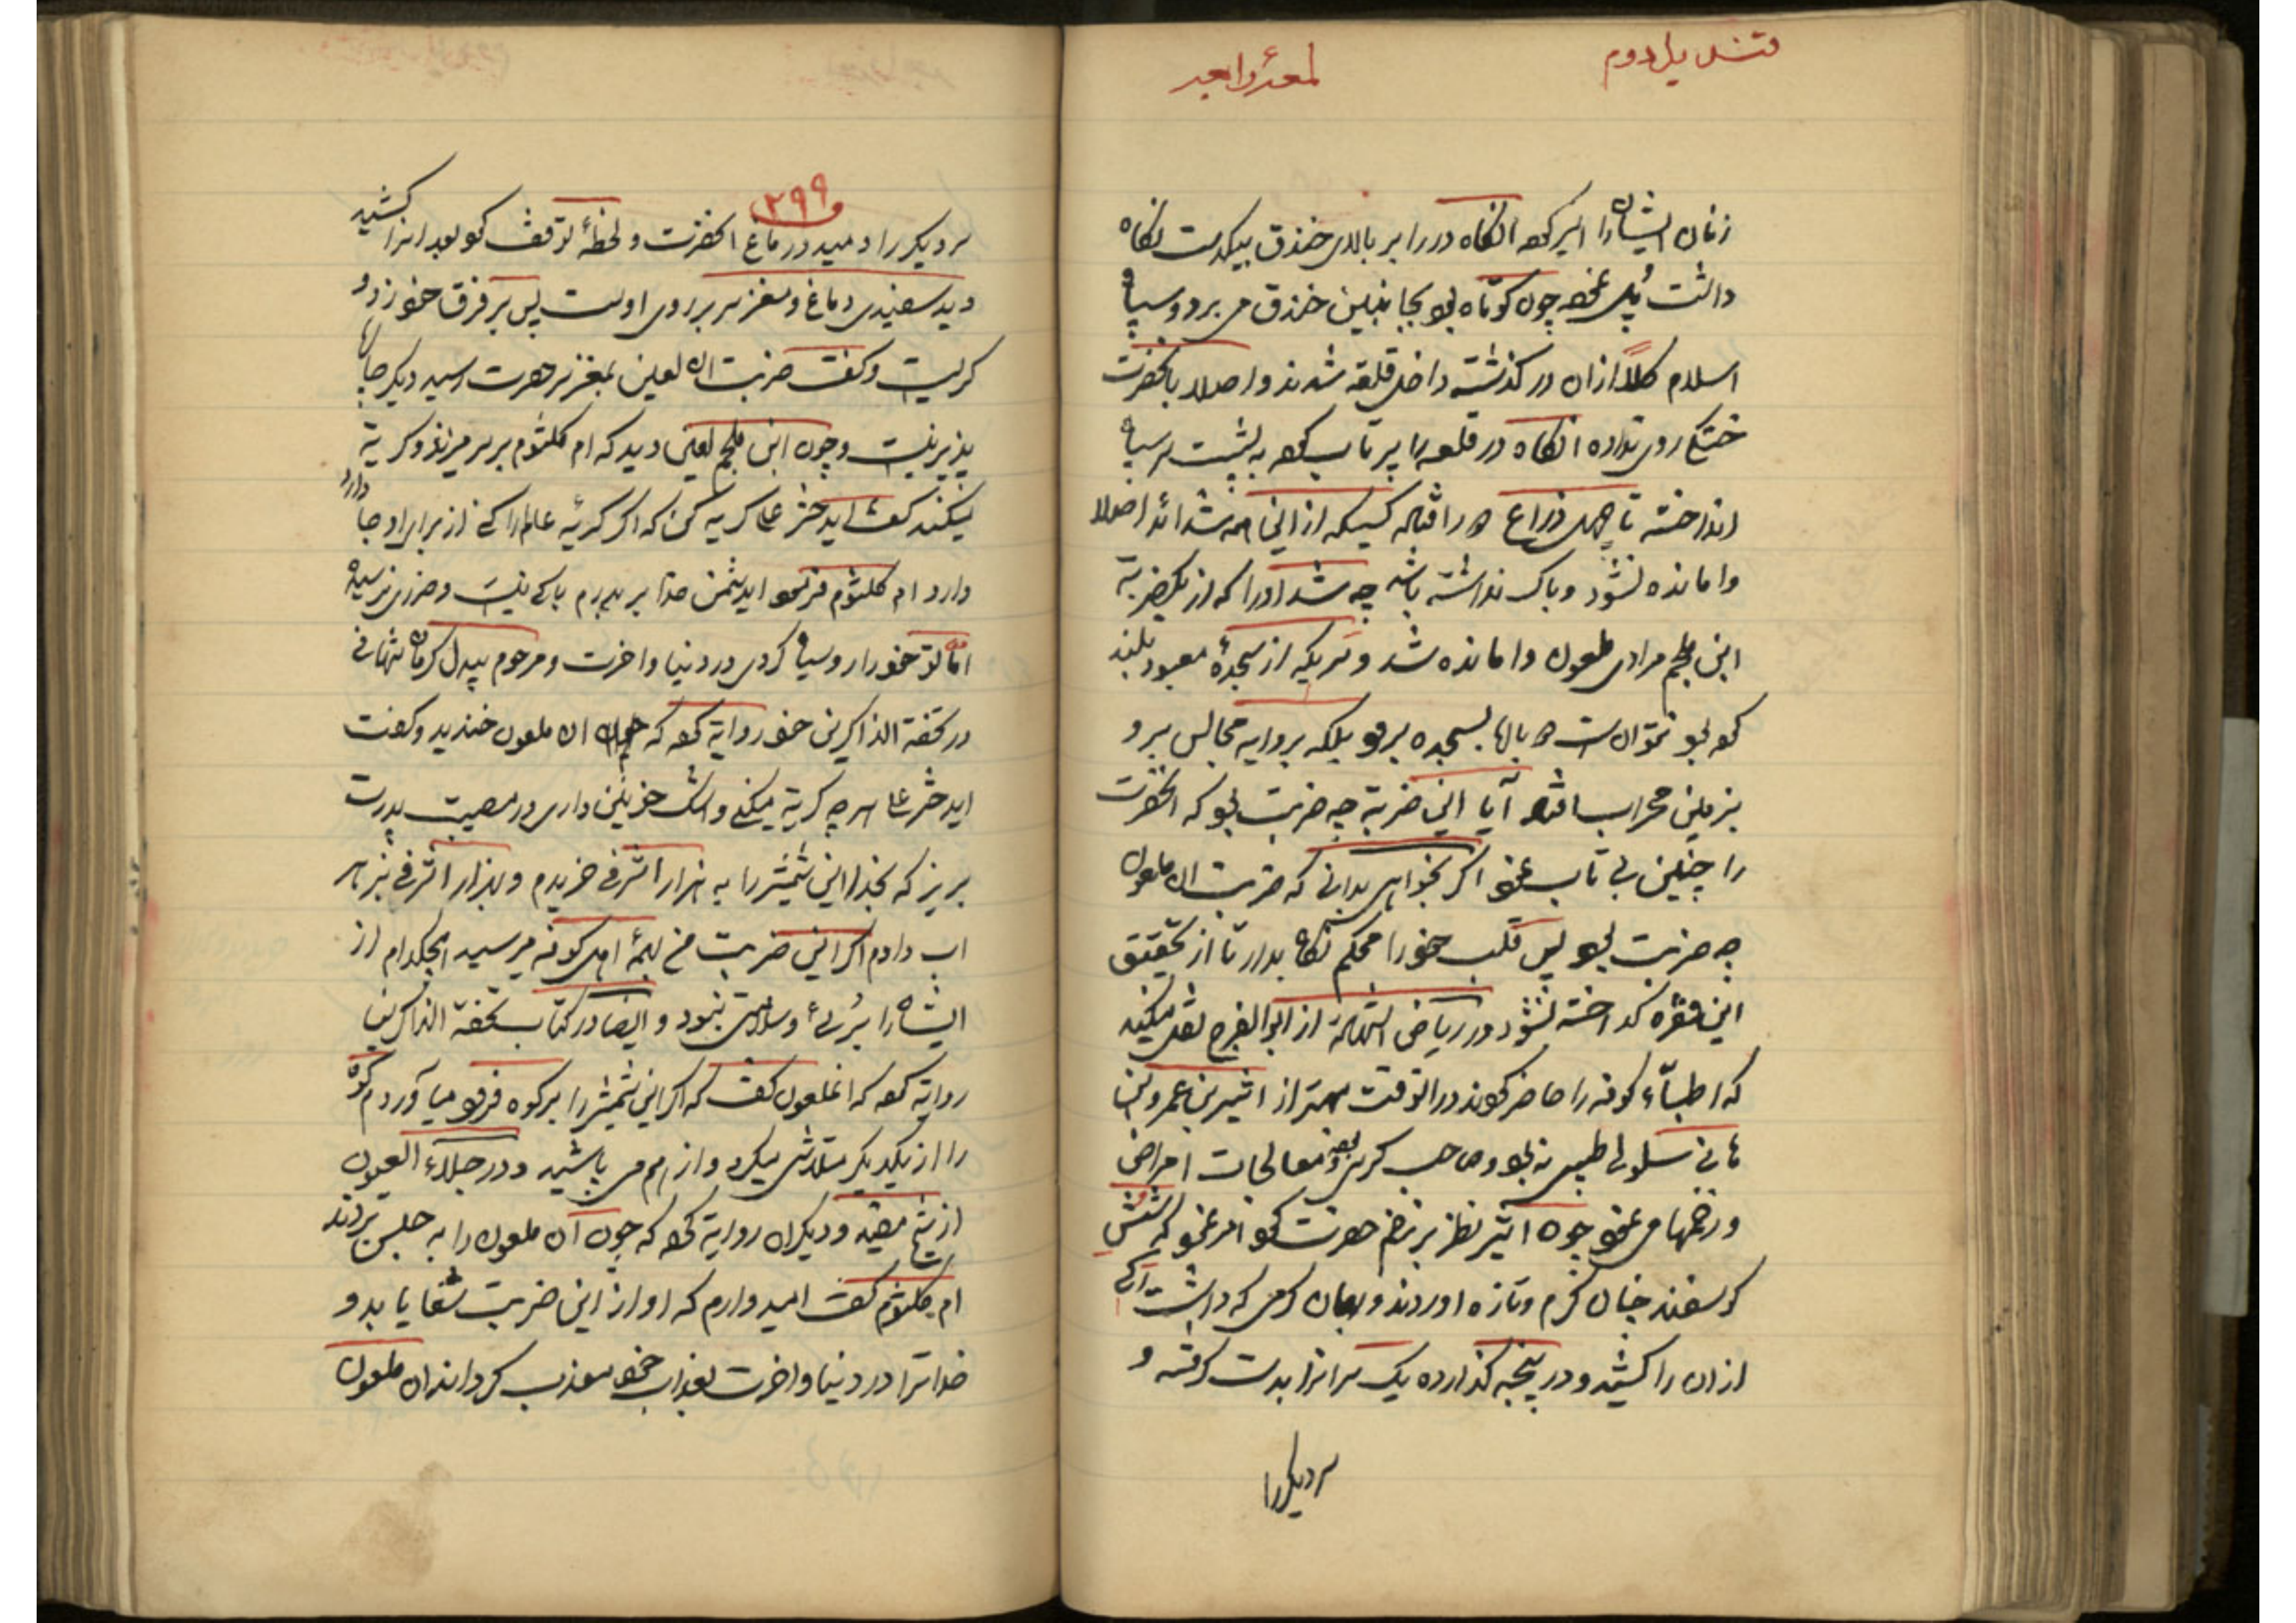 قندیل دوم
لمعهٔ رابعه
زنان ایشانرا اسیر کرد انگاه در را بر بالای خندق بیکدست نگاه
داشت پُل نمود چون کوتاه بود بجا نبین خندق می برد و سپاه
اسلام کلاً ازان در گذشته داخل قلعه شدند و اصلا بانحضرت
خستگی روی نداده انگاه در قلعه را پرتاب کرد به پشت سر سپاه
انداخته تا چهل ذراع دور افتاد کسیکه از این همه شدائد اصلا
وامانده نشود و باک نداشته باشد چه شد اورا که از یکضربة
ابن ملجم مرادی ملعون وامانده شد و سریکه از سجدهٔ معبود بلند
کرد بود نتوانست دوباره بسجده برد بلکه بروایه مجالس برو
بزمین محراب افتاد آیا این ضربة چه ضربت بود که انحضرت
را چنین بی تاب نمود اگر بخواهی بدانی که ضربت ان ملعون
چه ضربت بود پس قلب خود را محکم نگاه بدار تا از تحقیق
این فقره گداخته نشود در ریاض الشهادة از ابو الفرج نقل میکند
که اطباء کوفه را حاضر کردند در انوقت بهتر از اثیر بن عمرو بن
هانی سلولی طبیبی نبود و صاحب کرسی بود معالجات امراض
و زخمها می نمود چون اثیر نظر بر زخم حضرت کرد امر نمود که شش
گوسفند چنان گرم و تازه اوردند و بهمان گرمی که داشت رگی
ازان را کشید و در پنجه گذارده یک سر انرا بدست گرفته و
سر دیگر را
۲۹۹
سر دیگر را دمید در دماغ انحضرت و لحظهٔ توقف کرد بعد انرا کشید
دید سفیدی دماغ و مغز سر بر روی اوست پس بر فرق خود زد و
گریست و گفت ضربت ان لعین بمغز سر حضرت رسید دیگر چاره
پذیر نیست و چون ابن ملجم لعین دید که ام کلثوم بر سر میزند و گریة
میکند گفت ایدختر علی گریه کن که اگر گریهٔ عالم را کنی از برای او جا دارد
دارد ام کلثوم فرمود ایدشمن خدا بر پدرم باکی نیست و ضرری نرسیده
اما تو خود را رو سیاه کردی در دنیا و اخرت و مرحوم بیدل کرمانشاهانی
در تحفة الذاکرین خود روایة کرده که ان ملعون خندید و گفت
ایدختر علی هر چه گریه میکنی و اشک خونین داری در مصیبت پدرت
بریز که بخدا این شمشیر را به هزار اشرفی خریدم و بهزار اشرفی بزهر
اب دادم اگر این ضربت من بهمهٔ اهل کوفه میرسید هیچکدام از
ایشانرا بُرئ و سلامتی نبود و ایضا در کتاب تحفة الذاکرین
روایة کرده که انملعون گفت که اگر این شمشیر را بر کوه فرود میآوردم کوه
را از یکدیگر متلاشی میکرد و از هم می پاشید و در جلاء العیون
از شیخ مفید و دیگران روایة کرده که چون آن ملعون را به حبس بردند
ام کلثوم گفت امیدوارم که او از این ضربت شفا یابد و
خدا ترا در دنیا و اخرت بعذاب خود معذب گرداند ان ملعون